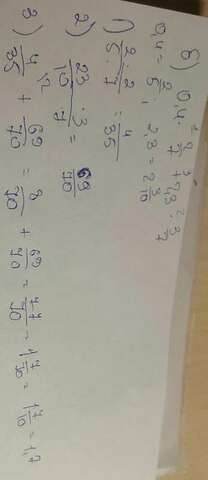 б) 0,4 · 2/7 + 2,3 · 3/7
0,4 = 2/5 ; 2,3 = 2 3/10
1) 2/5 · 2/7 = 4/35
2) 23/10 · 3/7 = 69/70
3) 4/35 + 69/70 = 8/70 + 69/70 = 77/70 = 1 7/70 = 1 7/10 = 1,7